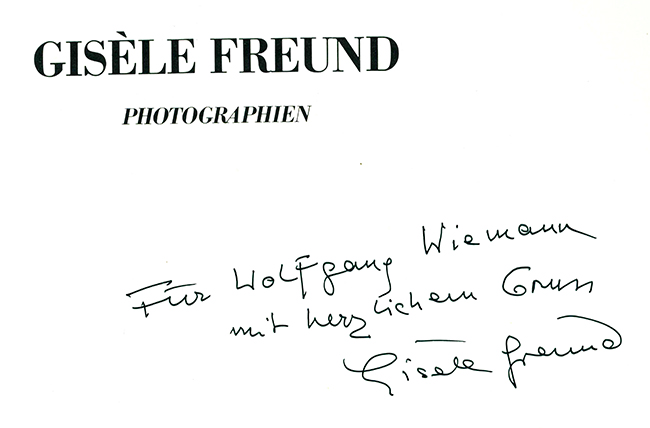 GISÈLE FREUND
PHOTOGRAPHIEN
Für Wolfgang Wiemann
mit herzlichem Gruss
Gisèle Freund